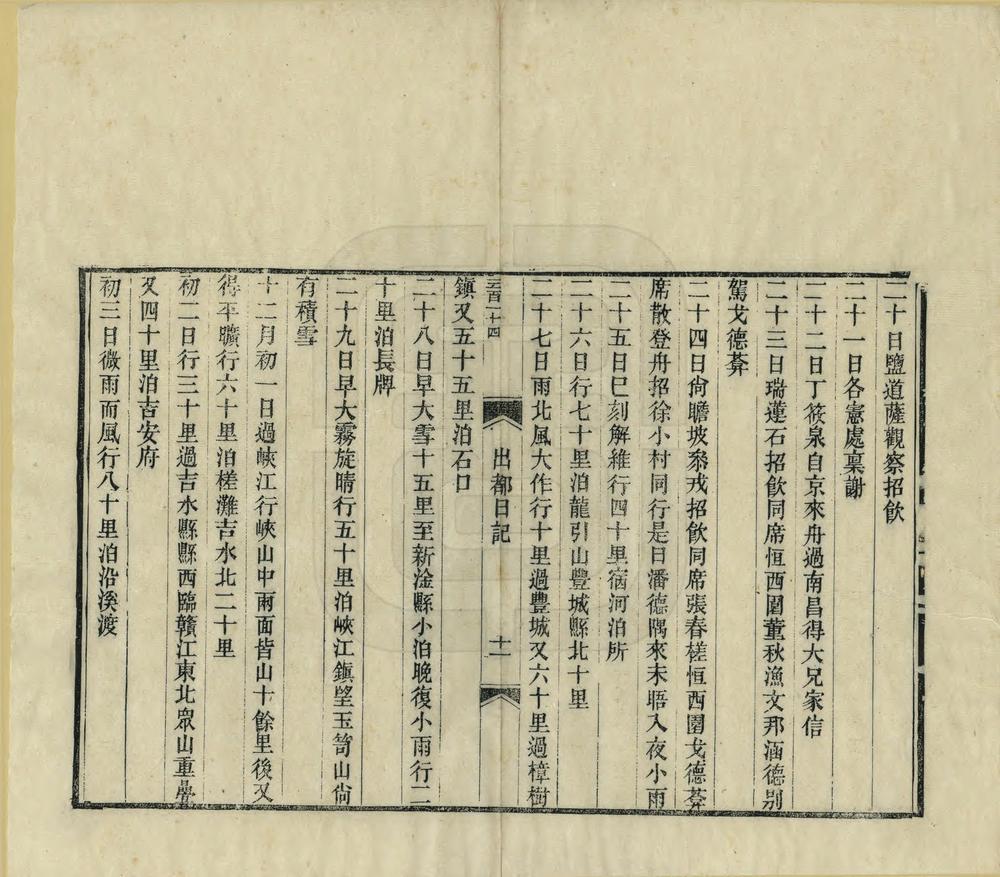 二十日鹽道薩觀察招飲
二十一日各憲處稟謝
二十二日丁筱泉自京來舟過南昌得大兄家信
二十三日瑞蓮石招飲同席恒西圃董秋漁文那涵德別
駕戈德莽
二十四日尙瞻坡叅戎招飲同席張春槎恒西圃戈德莽
席散登舟招徐小村同行是日潘德隅來未晤入夜小雨
二十五日巳刻解維行四十里宿河泊所
二十六日行七十里泊龍引山豐城縣北十里
二十七日雨北風大作行十里過豐城又六十里過樟樹
三百二十四
出都日記
十一
鎮又五十五里泊石口
二十八日早大雪十五里至新淦縣小泊晚復小雨行二
十里泊長牌
二十九日早大霧旋晴行五十里泊峽江鎮望玉笥山尙
有積雪
十二月初一日過峽江行峽山中兩面皆山十餘里後又
得平曠行六十里泊槎灘吉水北二十里
初二日行三十里過吉水縣縣西臨贛江東北眾山重疊
又四十里泊吉安府
初三日微雨而風行八十里泊沿溪渡